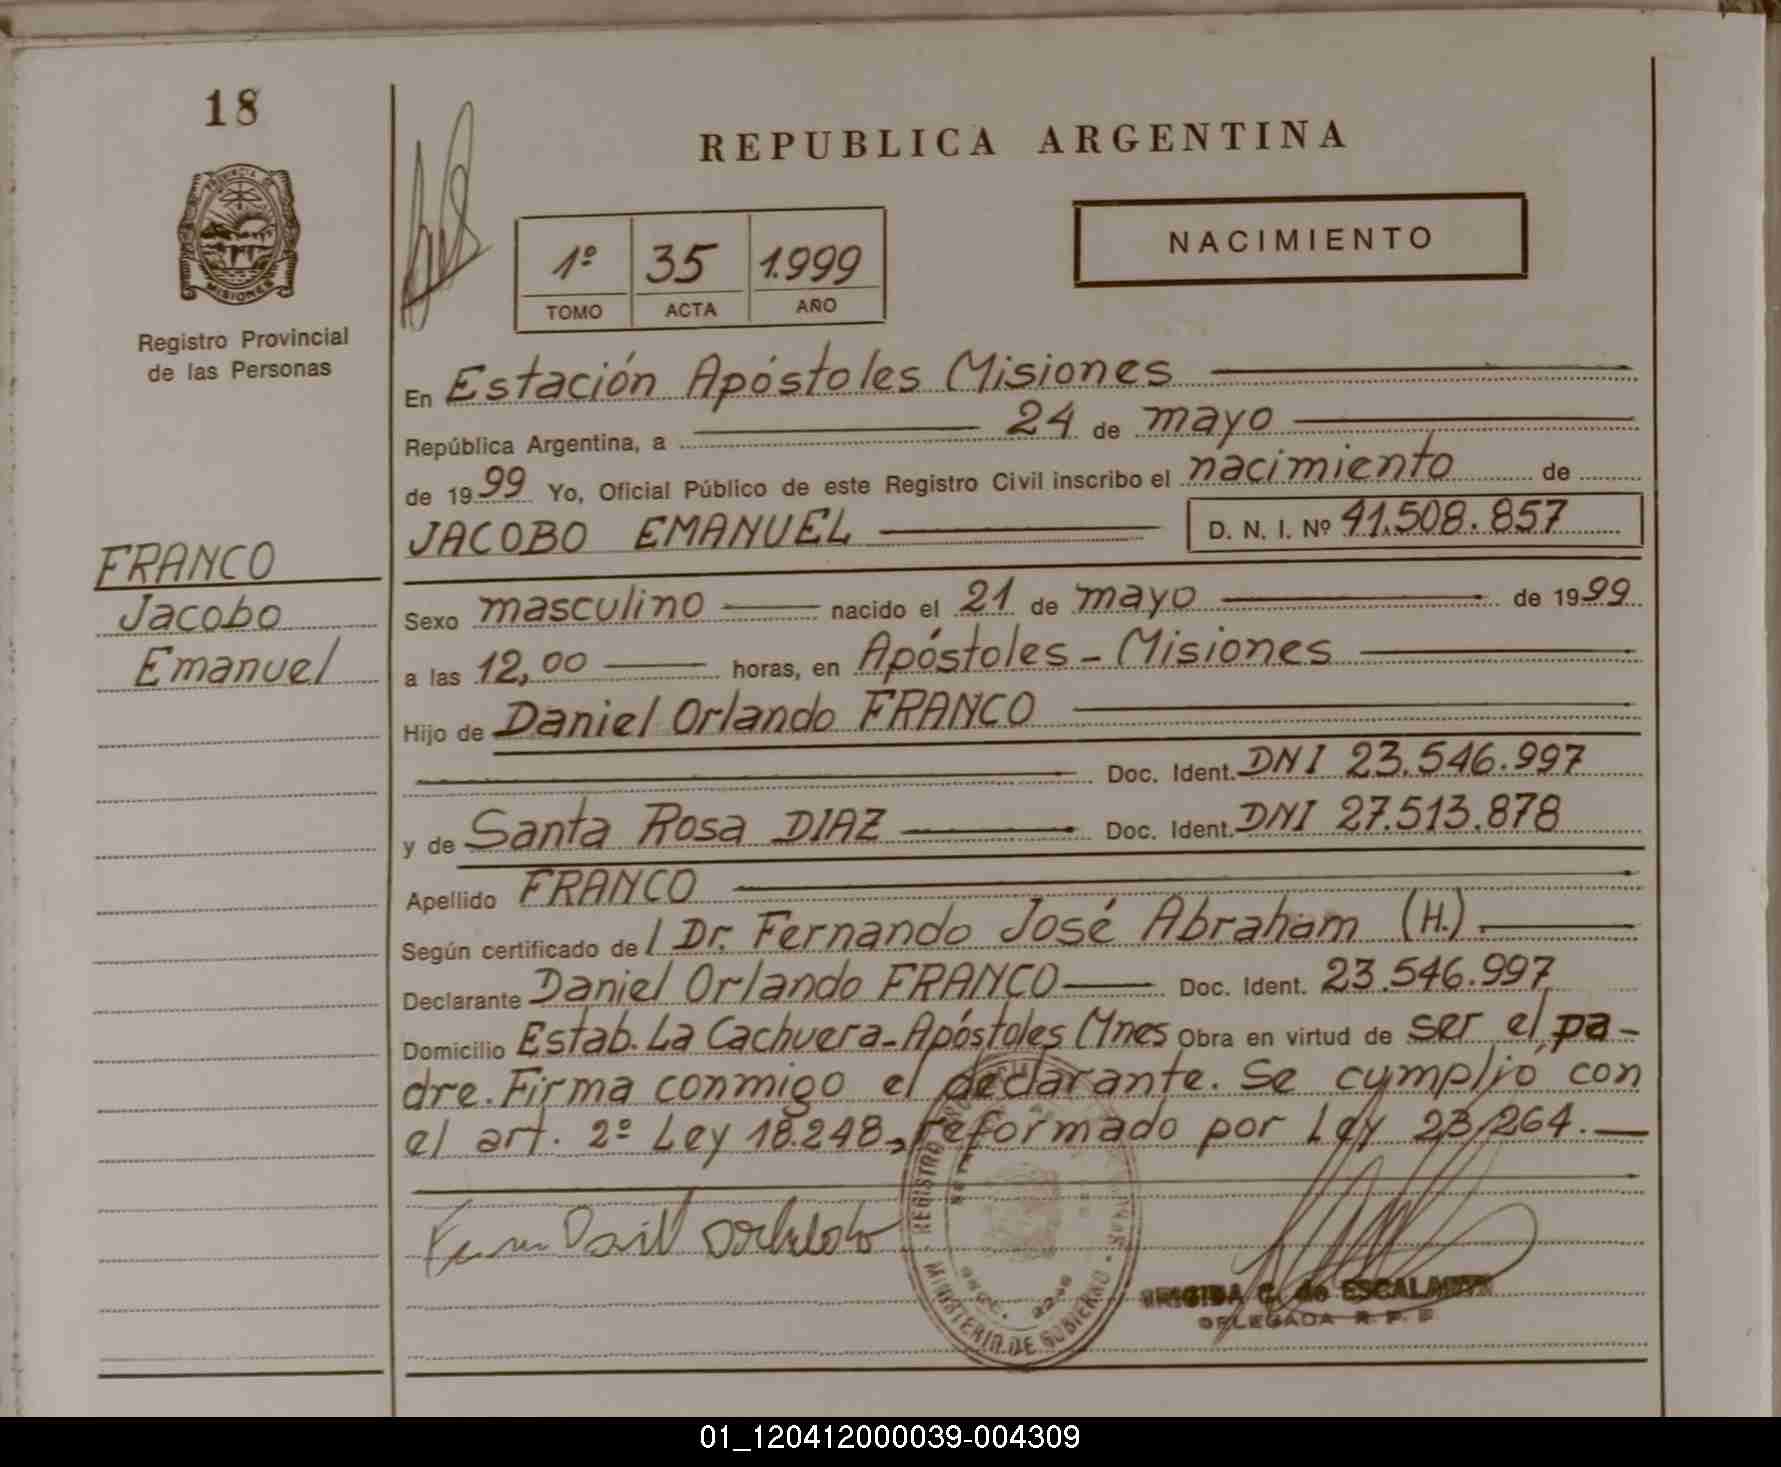 18
PROVINCIA DE
MISIONES
Registro Provincial
de las Personas
FRANCO
Jacobo
Emanuel
REPUBLICA ARGENTINA
NACIMIENTO
1º 35 1.999
TOMO ACTA AÑO
En Estación Apóstoles Misiones
República Argentina, a 24 de mayo
de 1999 Yo, Oficial Público de este Registro Civil inscribo el nacimiento de
JACOBO EMANUEL D. N. I. Nº 41.508.857
Sexo masculino nacido el 21 de mayo de 1999
a las 12,00 horas, en Apóstoles - Misiones
Hijo de Daniel Orlando FRANCO
Doc. Ident. DNI 23.546.997
y de Santa Rosa DIAZ Doc. Ident. DNI 27.513.878
Apellido FRANCO
Según certificado de l Dr. Fernando José Abraham (H.)
Declarante Daniel Orlando FRANCO Doc. Ident. 23.546.997
Domicilio Estab. La Cachuera - Apóstoles Mnes Obra en virtud de ser el pa-
dre. Firma conmigo el declarante. Se cumplió con
el art. 2º Ley 18.248, reformado por Ley 23,264.
REGISTRO
MINISTERIO DE GOBIERNO
C. de ESCALANTE
DELEGADA R. P. P.
01_120412000039-004309